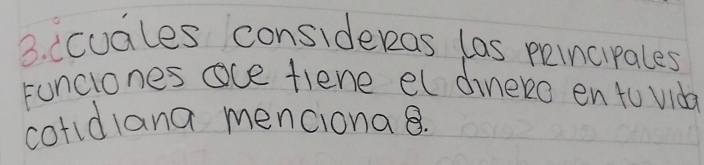 3.¿cuáles consideras las principales
Funciones que tiene el dinero en tu vida
cotidiana menciona 8.